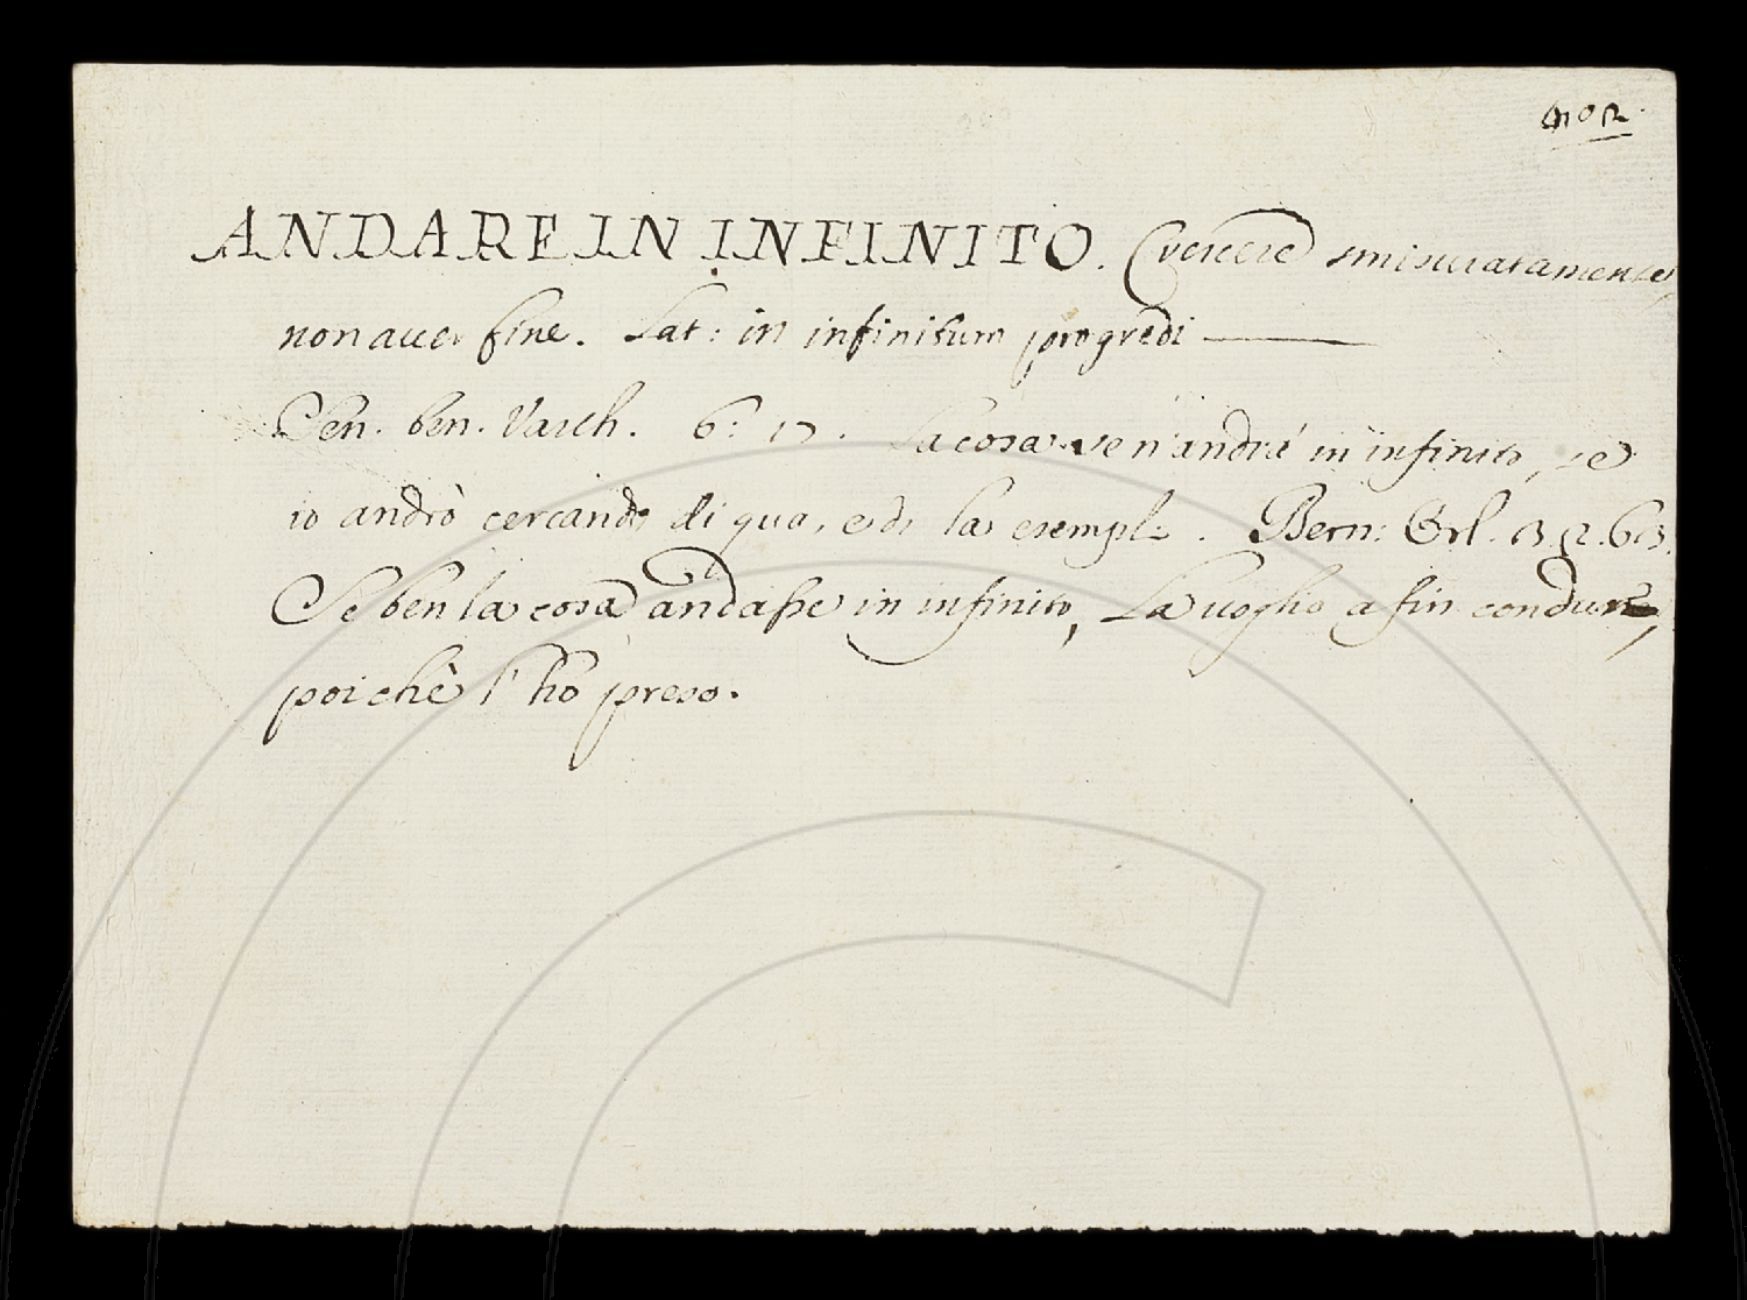 402.
ANDARE IN INFINITO. Crescere smisuratamente,
non auer fine. Lat: in infinitum progredi
Sen. ben. Varch. 6: 17. La cosa se n'andrà in infinito, se
io andrò cercando di qua, e di la esempli. Bern: Orl. 3.2.63.
Se ben la cosa andasse in infinito, La uoglio a fin condurre,
poichè l'hò preso.